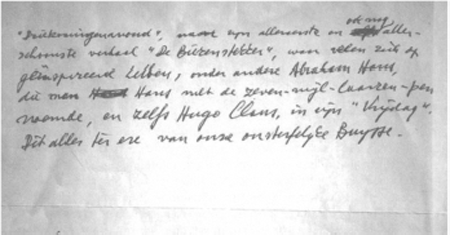 ook nog
"Driekoningenavond", naast zijn allereerste en aller-
schoonste verhaal "De Biezenstekker", waar velen zich op
geïnspireerd hebben, onder andere Abraham Hans,
die men Hans met de zeven-mijl-laarzen-pen
noemde, en zelfs Hugo Claus, in zijn "Vrijdag".
Dit alles ter ere van onze onsterfelijke Buysse.